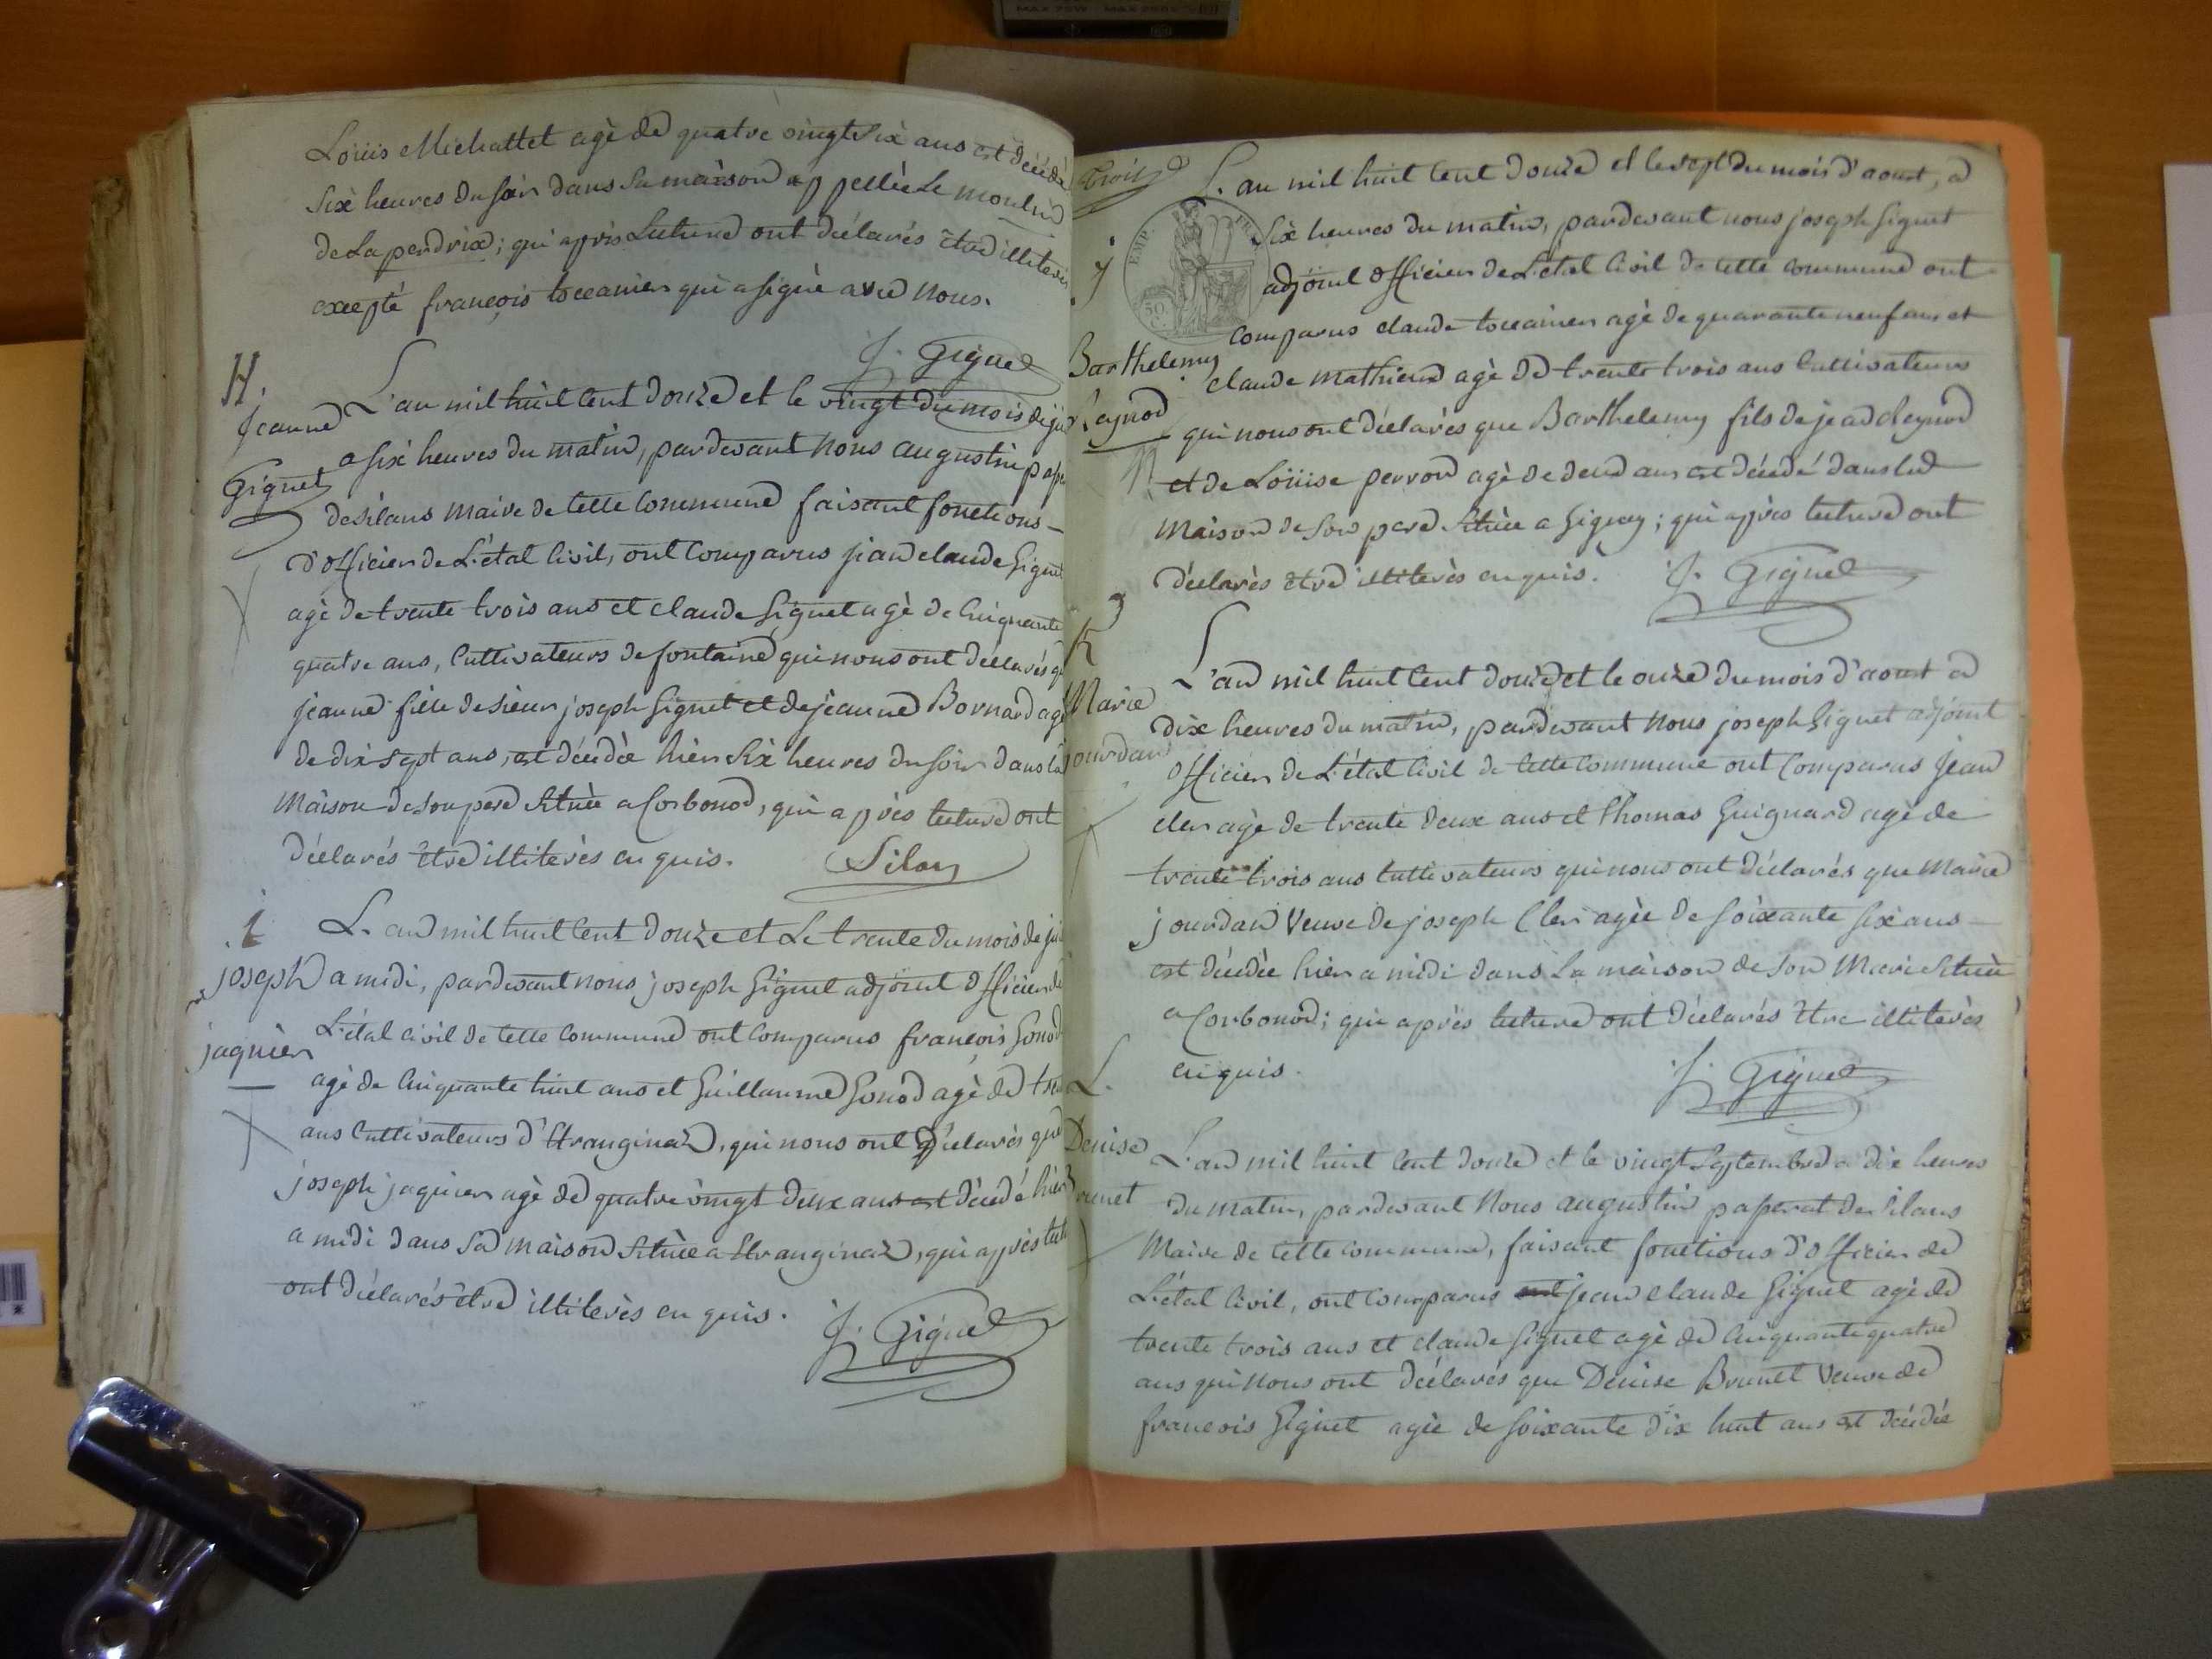 Loüis Michattet agè de quatre vingt six ans est décédé
six heures du soir dans sa maison appellée Le moulin
de La perdrix; qui après Lecture ont déclarés être illiterès
excepté françois toccanier qui a signé avec nous.
J. Gignet
H.
Jeanne
Gignet
L'an mil huit cent douze et le vingt du mois de
a six heures du matin, pardevant nous augustin
de silans maire de cette commune faisant fonctions
d'officier de L'état civil, ont comparus jean claude Gignet
agè de trente trois ans et claude Gignet agè de cinquante
quatre ans, cultivateurs de fontaine qui nous ont déclarés
jeanne fille de sieur joseph Gignet et de jeanne Bornard
de dix sept ans, est décédée hièr six heures du soir dans la
maison de son pere située a Corbonod, qui après lecture ont
déclarés être illiterès enquis. Silans
i
joseph
jaquièr
L'an mil huit cent douze et Le trente du mois de
a midi, pardevant nous joseph Gignet adjoint officier de
L'état civil de cette commune ont comparus françois Gonod
agè de cinquante huit ans et Guillaume Gonod agè de
ans cultivateurs d'Etranginaz, qui nous ont déclarés que
joseph jaquier agè de quatre vingt deux ans est décédé hièr
a midi dans sa maison située a Etranginaz, qui après
ont déclarés être illiterès enquis.
J. Gignet
trois
j
Barthelemy
Reynod
EMP. FRA
50 C.
L'an mil huit cent douze et le sept du mois d'aoust, a
six heures du matin, pardevant nous joseph Gignet
adjoint officier de L'état civil de cette commune ont
comparus claude toccanier agè de quarante neuf ans et
claude mathieu agè de trente trois ans cultivateurs
qui nous ont déclarés que Barthelemy fils de jean Reynod
et de Loüise perron agè de deux ans est décédé dans la
maison de son pere située a Gignez; qui après lecture ont
déclarés être illiterès enquis. J. Gignet
K
Marie
jourdan
L'an mil huit cent douze et le onze du mois d'aoust a
dix heures du matin, pardevant nous joseph Gignet adjoint
officier de L'état civil de cette commune ont comparus jean
cler agè de trente deux ans et thomas Guignard agè de
trente trois ans cultivateurs qui nous ont déclarés que Marie
jourdan veuve de joseph Cler agée de soixante six ans
est décédée hier a midi dans La maison de son Mari située
a Corbonod; qui après lecture ont déclarés être illiterès
enquis. J. Gignet
L.
Denise
Brunet
L'an mil huit cent douze et le vingt septembre a dix heures
du matin, pardevant nous augustin paperat de silans
Maire de cette commune, faisant fonctions d'officier de
L'état civil, ont comparus jean claude Gignet agè de
trente trois ans et claude Gignet agè de cinquante quatre
ans qui nous ont déclarés que Denise Brunet veuve de
françois Gignet agée de soixante dix huit ans est décédée